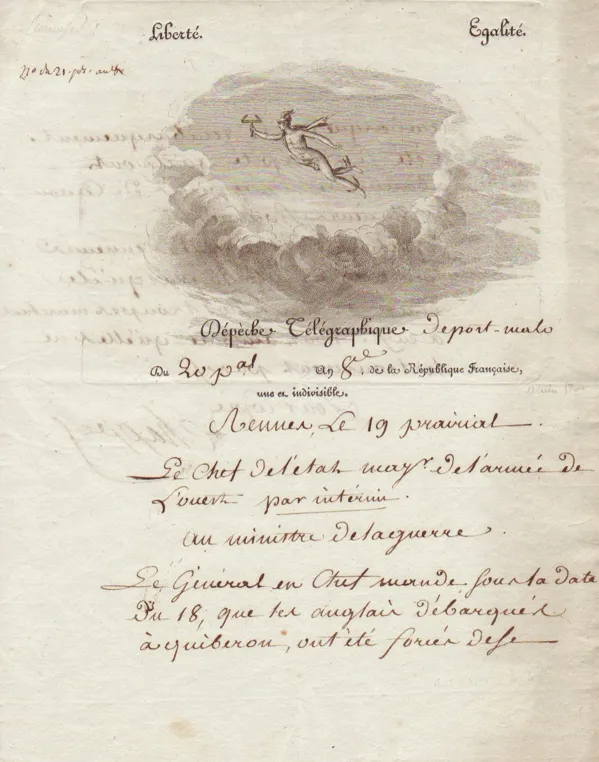 Liberté. Egalité.
Dépèche Télégraphique de port-malo
Du 20 p.al An 8.e de la République Française,
une et indivisible.
Rennes, Le 19 prairial.
Le Chef de l'état may.r de l'armée de
L'ouest par intérim.
au ministre de la guerre.
Le Général en Chef mande sous la date
Du 18, que les anglais débarqués
à quiberon, ont été forcés de se